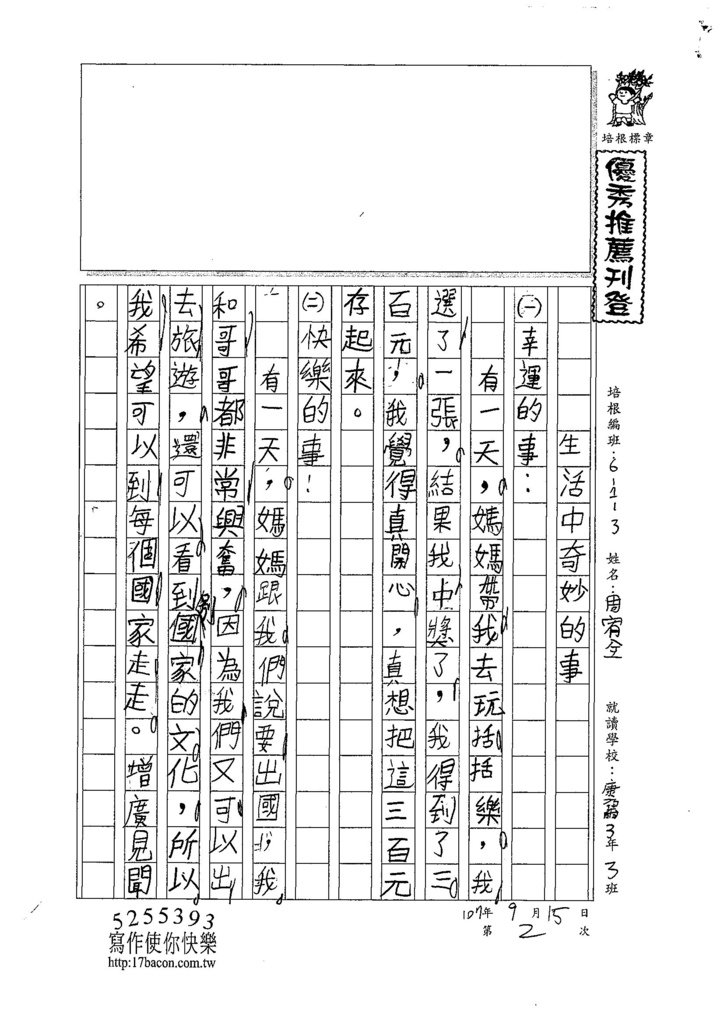 培根標章
優秀推薦刊登
培根編班：6-1-3 姓名：周宥全 就讀學校：康3年3班
生活中奇妙的事
㈠幸運的事：
有一天，媽媽帶我去玩括括樂，我
選了一張，結果我中獎了，我得到了三
百元，我覺得真開心，真想把這三百元
存起來。
㈡快樂的事！
有一天，媽媽跟我們說要出國，我
和哥哥都非常興奮，因為我們又可以出
去旅遊，還可以看到國家的文化，所以
我希望可以到每個國家走走。增廣見聞
。
107年9月15日
第2次
5255393
寫作使你快樂
http:17bacon.com.tw